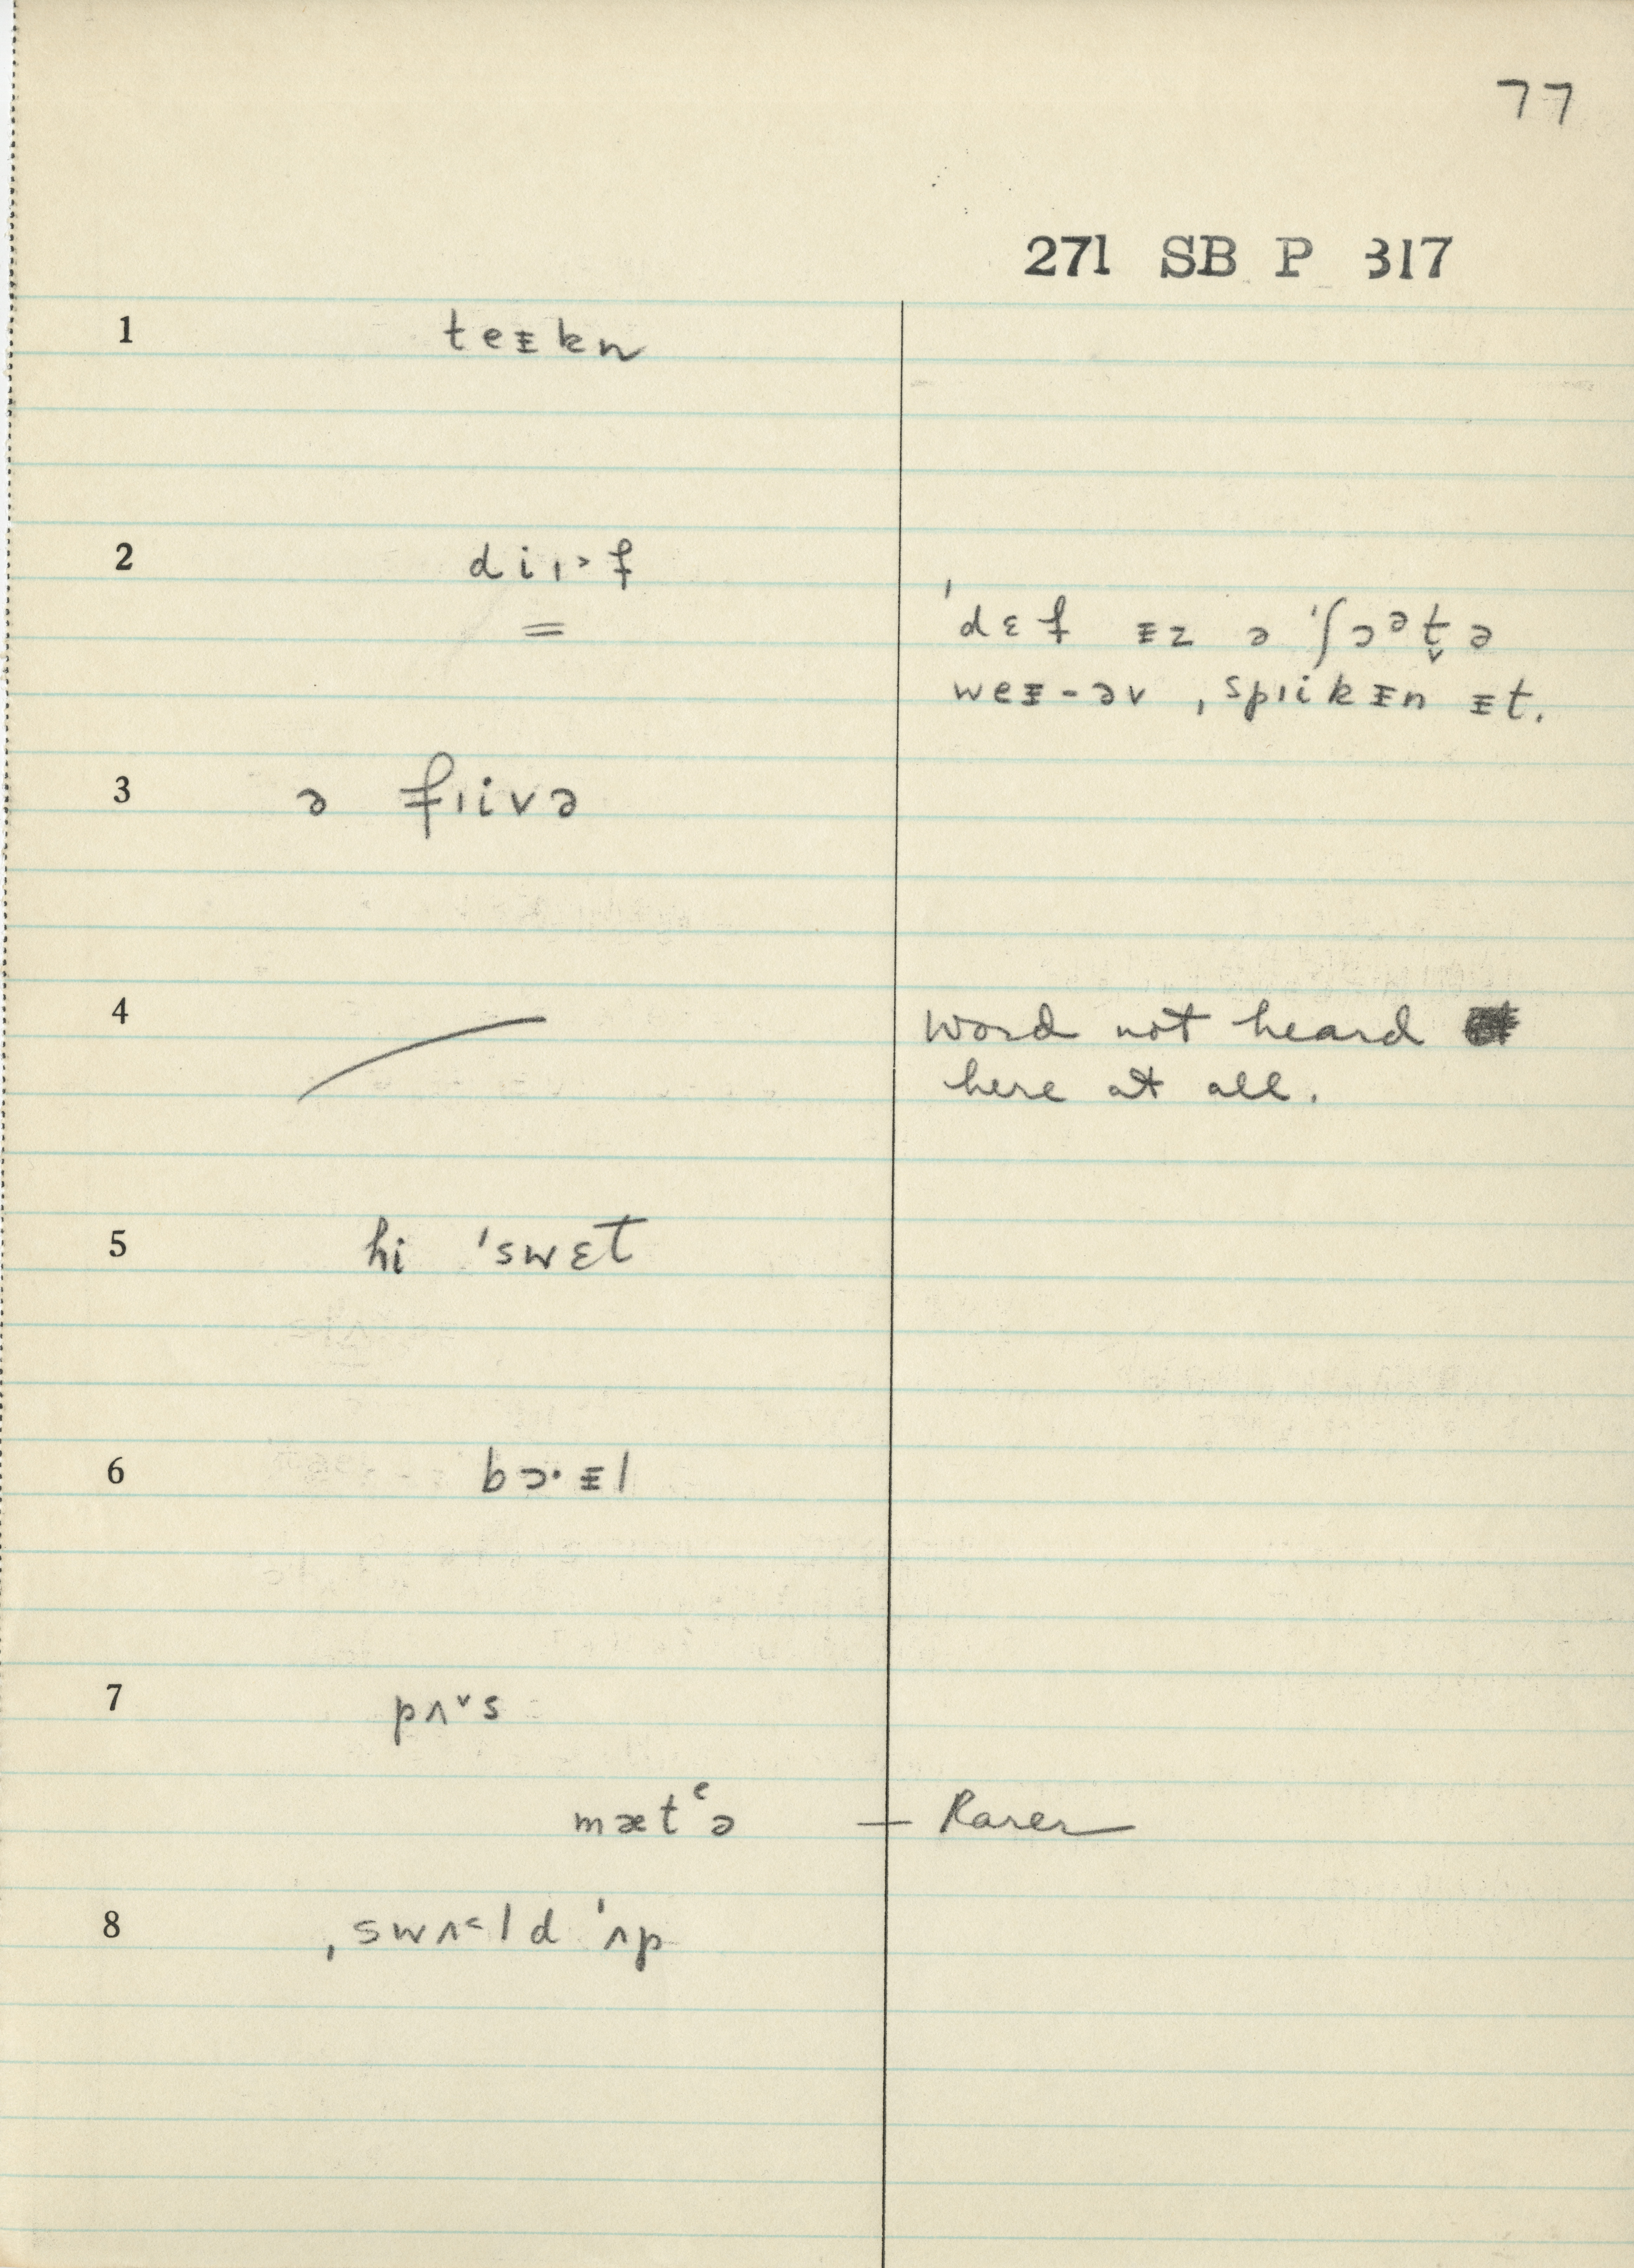 77
271 SB P 317
1 teᵻkn
2 diı˃f
ˈdɛf ᵻz ə ˈʃɔᵊt̬ə
weᵻ-əv ˌspıikᵻn ᵻt.
3 ə fıivə
4 word not heard
here at all.
5 hi ˈswɛt
6 bɔ·ᵻl
7 pʌ˅s
mætᶜə – Rarer
8 ˌswʌ˂ld ˈʌp